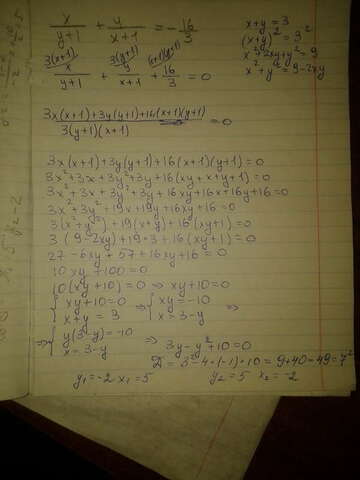 x/(y+1) + y/(x+1) = -16/3
x+y=3
(x+y)²=3²
x²+2xy+y²=9
x²+y²=9-2xy
3(x+1) 3(y+1) (x+1)(y+1)
x/(y+1) + y/(x+1) + 16/3 = 0
(3x(x+1)+3y(y+1)+16(x+1)(y+1))/(3(y+1)(x+1)) = 0
3x(x+1)+3y(y+1)+16(x+1)(y+1)=0
3x²+3x+3y²+3y+16(xy+x+y+1)=0
3x²+3x+3y²+3y+16xy+16x+16y+16=0
3x²+3y²+19x+19y+16xy+16=0
3(x²+y²)+19(x+y)+16(xy+1)=0
3(9-2xy)+19·3+16(xy+1)=0
27-6xy+57+16xy+16=0
10xy+100=0
10(xy+10)=0 ⇒ xy+10=0
{xy+10=0 ⇒ {xy=-10 ⇒
x+y=3 x=3-y
⇒ {y(3-y)=-10 ⇒ 3y-y²+10=0
x=3-y
D=3²-4·(-1)·10=9+40=49=7²
y₁=-2 x₁=5 y₂=5 x₂=-2